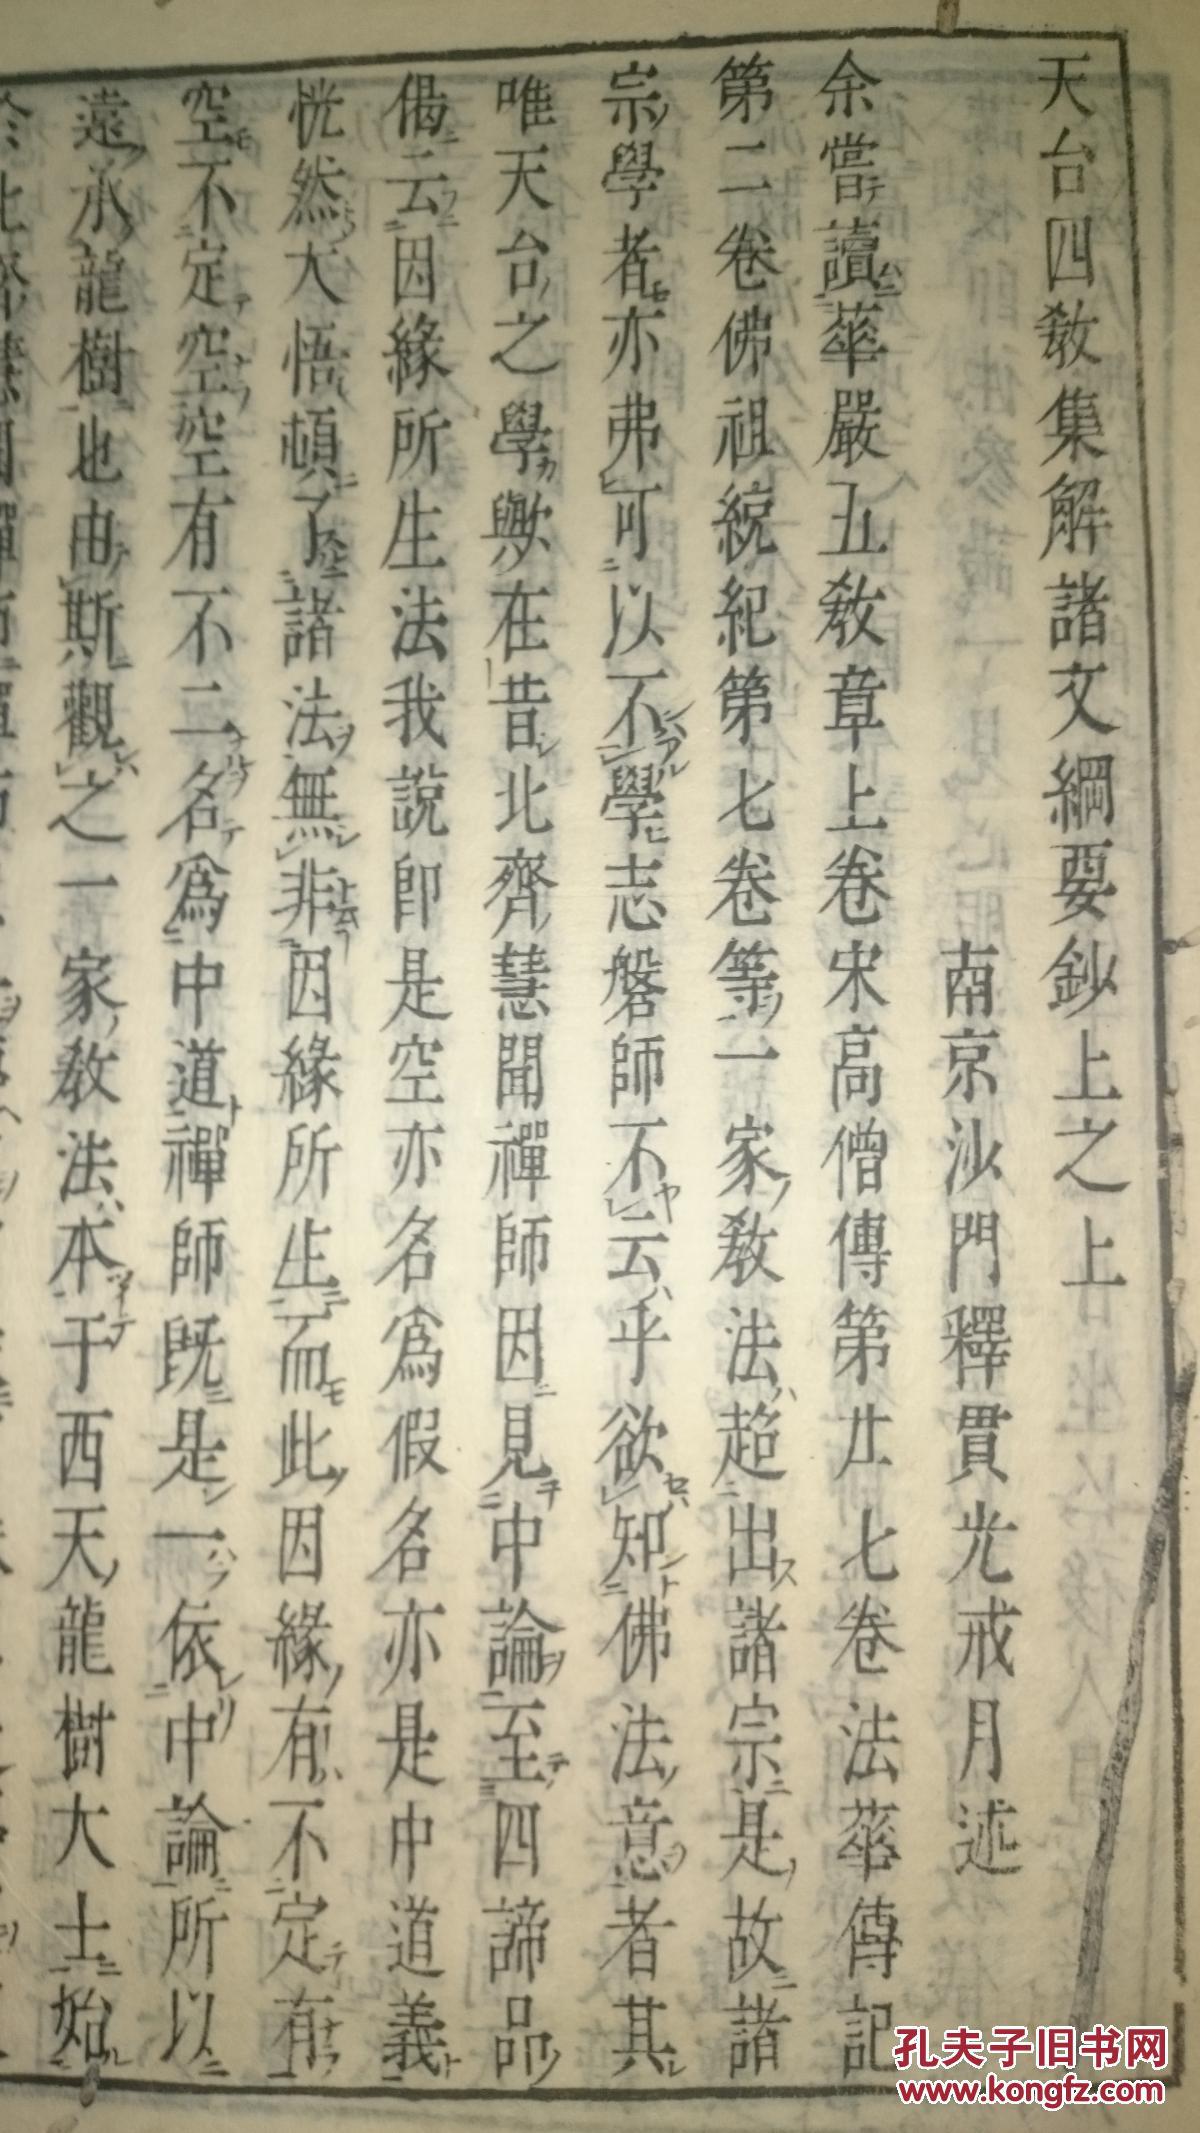 天台四教集解諸文綱要鈔上之上
南京沙門釋貫光戒月述
余嘗讀華嚴五教章上卷宋高僧傳第廿七卷法華傳記
第二卷佛祖統紀第七卷等一家教法超出諸宗是故諸
宗學者亦弗可以不學志磐師不云乎欲知佛法意者其
唯天台之學歟在昔北齊慧聞禪師因見中論至四諦品
偈云因緣所生法我說即是空亦名為假名亦是中道義
恍然大悟頓了諸法無非因緣所生而此因緣有不定有
空不定空空有不二名為中道禪師既是一依中論所以
遠承龍樹也由斯觀之一家教法本于西天龍樹大士始
孔夫子旧书网
www.kongfz.com